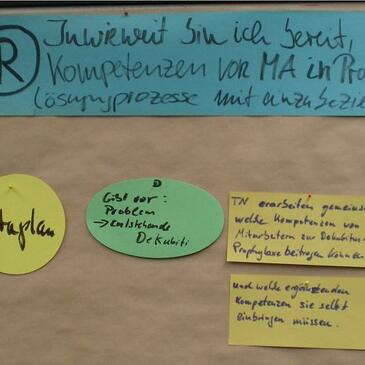 R Inwieweit bin ich bereit,
Kompetenzen von MA in Pro
lösungsprozesse mit einzubezie
taplan
D
Gibt vor:
Problem
→ entstehende
Dekubiti
TN erarbeiten gemeins
welche Kompetenzen von
Mitarbeitern zur Dekubitus-
Prophylaxe beitragen können
und welche ergänzenden
Kompetenzen sie selbst
einbringen müssen.